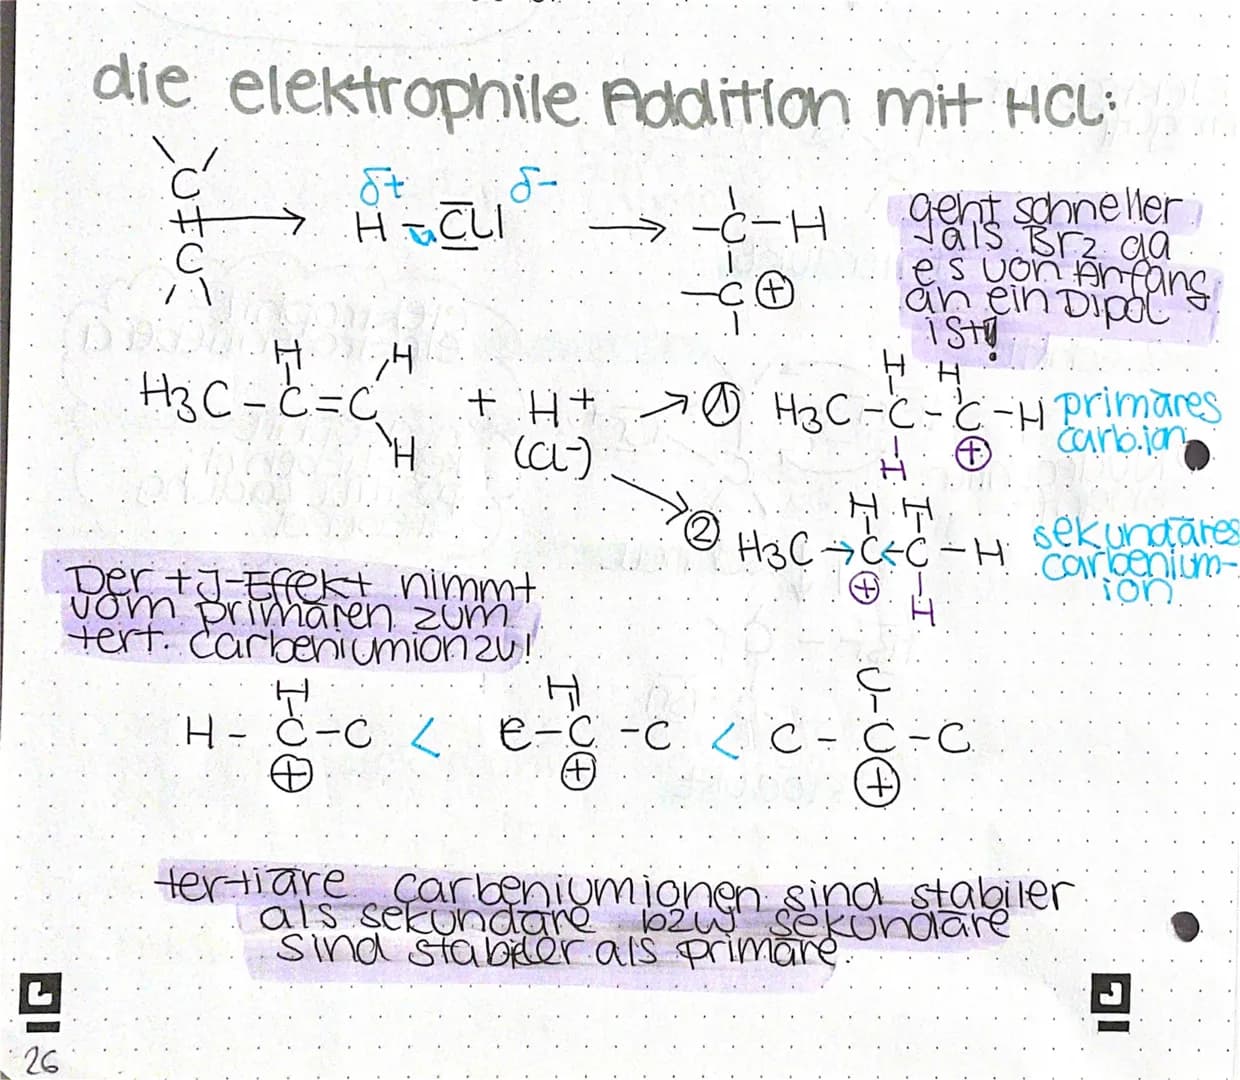 die elektrophile Addition mit HCl:
C
δ+ δ-
H - Cl
C
-C-H
-C ⊕
geht schneller
als Br2 da
es von Anfang
an ein Dipol
ist!
H H
H3C-C=C
H
+ H+
(Cl-)
① H3C-C-C-H
H H
H ⊕
primäres
carb.ion
② H3C→C←C-H
H H
⊕ H
sekundäres
carbenium-
ion
Der +I-Effekt nimmt
vom primären zum
tert. carbeniumion zu!
H H C
H - C-C < C-C-C < C-C-C
⊕ ⊕ ⊕
tertiäre carbeniumionen sind stabiler
als sekundäre bzw sekundäre
sind stabiler als primäre.
26